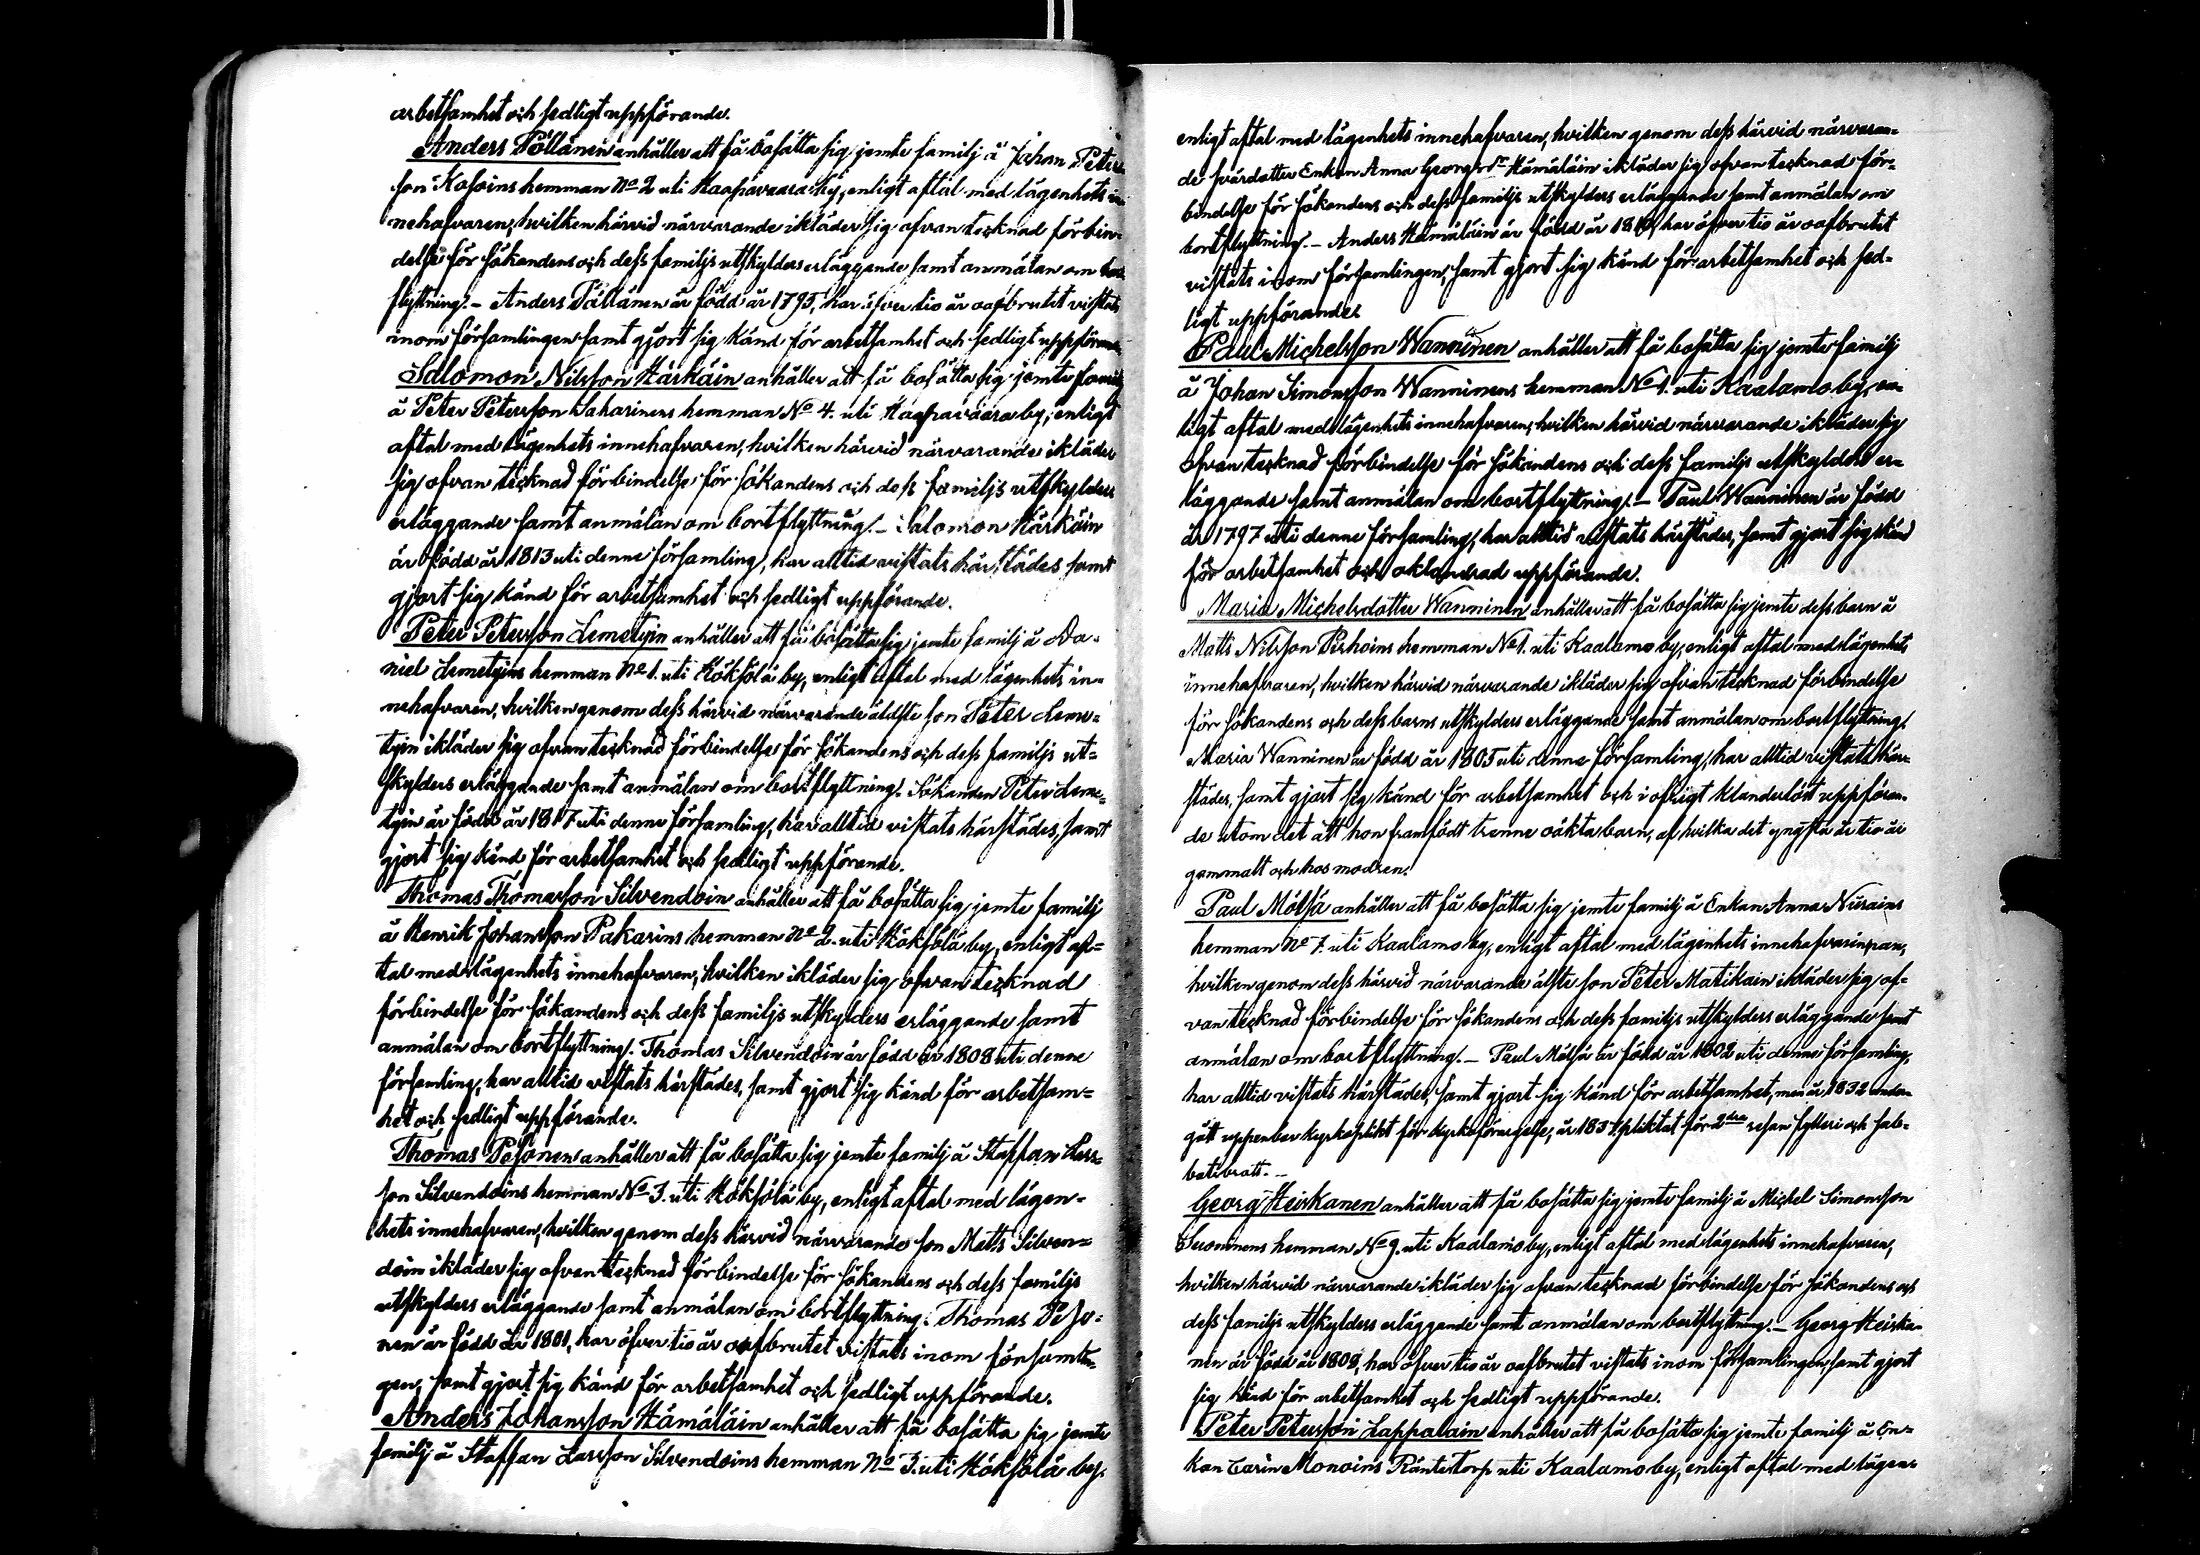 arbetsamhet och sedligt uppförande.
Anders Pöllänen anhåller att få bosätta sig jemte familj å Johan Peters
son Kosoins hemman No 2 uti Haapavaara by, enligt aftal med lägenhets in-
nehafvaren, hvilken härvid närvarande ikläder sig ofvan tecknad förbin-
delse för sökandens och dess familjs utskylders erläggande samt anmälan om bort
flyttning. – Anders Pöllänen är född år 1795, har öfver tio år oafbrutet vistats
inom församlingen samt gjort sig känd för arbetsamhet och sedligt uppförande
Salomon Nilsson Härkäin anhåller att få bosätta sig jemte familj
å Peter Petersson Saharinens hemman No 4. uti Haapavaara by, enligt
aftal med lägenhets innehafvaren, hvilken härvid närvarande ikläder
sig ofvan tecknad förbindelse för sökandens och dess familjs utskylders
erläggande samt anmälan om bortflyttning. – Salomon Härkäin
är född år 1813 uti denne församling, har alltid vistats härstädes samt
gjort sig känd för arbetsamhet och sedligt uppförande.
Peter Petersson Lemetyin anhåller att få bosätta sig jemte familj å Da-
niel Lemetyins hemman No 1. uti Hökfölä by, enligt aftal med lägenhets in-
nehafvaren, hvilken genom dess härvid närvarande äldste son Peter Leme-
tyin ikläder sig ofvan tecknad förbindelse för sökandens och dess familjs ut-
skylders erläggande samt anmälan om bortflyttning. Sökanden Peter Leme-
tyin är född år 1817 uti denne församling, har alltid vistats härstädes, samt
gjort sig känd för arbetsamhet och sedligt uppförande.
Thomas Thomasson Silvendoin anhåller att få bosätta sig jemte familj
å Henrik Johansson Pakarins hemman No 2. uti Hökfölä by, enligt af-
tal med lägenhets innehafvaren, hvilken ikläder sig ofvan tecknad
förbindelse för sökandens och dess familjs utskylders erläggande samt
anmälan om bortflyttning. Thomas Silvendoin är född år 1808 uti denne
församling, har alltid vistats härstädes, samt gjort sig känd för arbetsam-
het och sedligt uppförande.
Thomas Pesonen anhåller att få bosätta sig jemte familj å Staffan Lars-
son Silvendoins hemman No 3. uti Hökfölä by, enligt aftal med lägen-
hets innehafvaren, hvilken genom dess härvid närvarande son Matts Silven-
doin ikläder sig ofvan tecknad förbindelse för sökandens och dess familjs
utskylders erläggande samt anmälan om bortflyttning. Thomas Peso-
nen är född år 1801, har öfver tio år oafbrutet vistats inom församlin-
gen, samt gjort sig känd för arbetsamhet och sedligt uppförande.
Anders Johansson Hämäläin anhåller att få bosätta sig jemte
familj å Staffan Larsson Silvendoins hemman No 3. uti Hökfölä by,
enligt aftal med lägenhets innehafvaren, hvilken genom dess härvid närvaran-
de svärdotter Enkan Anna Georgsdr Hämäläin ikläder sig ofvan tecknad för-
bindelse för sökandens och dess familjs utskylders erläggande samt anmälan om
bortflyttning. – Anders Hämäläin är född år 1810, har öfver tio år oafbrutet
vistats inom församlingen, samt gjort sig känd för arbetsamhet och sed-
ligt uppförande.
Paul Michelsson Wanninen anhåller att få bosätta sig jemte familj
å Johan Simonsson Wanninens hemman No 1. uti Kaalamo by, en-
ligt aftal med lägenhets innehafvaren, hvilken härvid närvarande ikläder sig
ofvan tecknad förbindelse för sökandens och dess familjs utskylders er-
läggande samt anmälan om bortflyttning. – Paul Wanninen är född
år 1797 uti denne församling, har alltid vistats härstädes, samt gjort sig känd
för arbetsamhet och oklandrad uppförande.
Maria Michelsdotter Wanninen anhåller att få bosätta sig jemte dess barn å
Matts Nilsson Pirhoins hemman No 1. uti Kaalamo by, enligt aftal med lägenhets
innehafvaren, hvilken härvid närvarande ikläder sig ofvan tecknad förbindelse
för sökandens och dess barns utskylders erläggande samt anmälan om bortflyttning.
Maria Wanninen är född år 1805 uti denne församling, har alltid vistats här-
städes, samt gjort sig känd för arbetsamhet och i öfrigt klanderlöst uppföran-
de utom det att hon framfödt trenne oäkta barn, af hvilka det yngsta är tio år
gammalt och hos modren.
Paul Mölsä anhåller att få bosätta sig jemte familj å Enkan Anna
hemman No 7. uti Kaalamo by, enligt aftal med lägenhets innehafvarinnan,
hvilken genom dess härvid närvarande älste son Peter Matikain ikläder sig of-
van tecknad förbindelse för sökandens och dess familjs utskylders erläggande samt
anmälan om bortflyttning. – Paul Mölsä är född år 1802 uti denne församling,
har alltid vistats härstädes, samt gjort sig känd för arbetsamhet, men år 1832 under-
gått uppenbar kyrkoplikt för kyrkoförargelse, år 1837 pliktat för 2dra resan fylleri och sab-
batsbrott. –
Georg Heiskanen anhåller att få bosätta sig jemte familj å Michel Simonsson
Suominens hemman No 9. uti Kaalamo by, enligt aftal med lägenhets innehafvaren,
hvilken härvid närvarande ikläder sig ofvan tecknad förbindelse för sökandens och
dess familjs utskylders erläggande samt anmälan om bortflyttning. – Georg Heiska-
nen är född år 1808, har öfver tio år oafbrutet vistats inom församlingen, samt gjort
sig känd för arbetsamhet och sedligt uppförande.
Peter Petersson Lappalain anhåller att få bosätta sig jemte familj å En-
kan Carin Monoins Räntetorp uti Kaalamo by, enligt aftal med lägen-